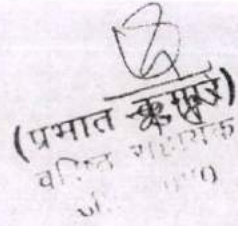 (प्रभात कुमार)
वरिष्ठ सहायक